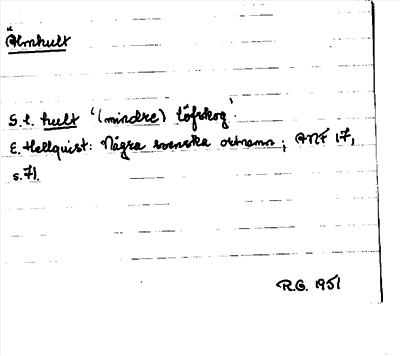 Älmhult
S.t. hult '(mindre) löfskog'.
E. Hellquist: Några svenska ortnamn; ANF 17,
s. 71.
R.G. 1951